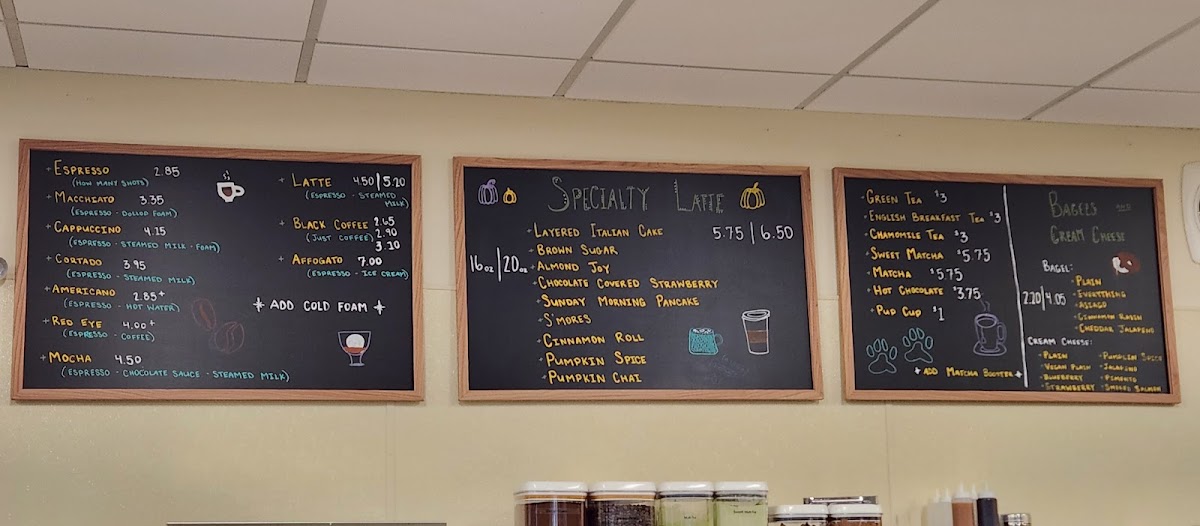 + Espresso 2.85
(How many shots)
+ Macchiato 3.35
(Espresso - Dollop Foam)
+ Cappuccino 4.25
(Espresso - Steamed Milk - Foam)
+ Cortado 3.95
(Espresso - Steamed Milk)
+ Americano 2.85+
(Espresso - Hot Water)
+ Red Eye 4.00+
(Espresso - Coffee)
+ Mocha 4.50
(Espresso - Chocolate Sauce - Steamed Milk)
+ Latte 4.50 | 5.20
(Espresso - Steamed
Milk)
+ Black Coffee 2.65
(Just Coffee) 2.90
3.20
+ Affogato 7.00
(Espresso - Ice Cream)
+ Add Cold Foam +
Specialty Latte
16oz | 20oz
5.75 | 6.50
+ Layered Italian Cake
+ Brown Sugar
+ Almond Joy
+ Chocolate Covered Strawberry
+ Sunday Morning Pancake
+ S'mores
+ Cinnamon Roll
+ Pumpkin Spice
+ Pumpkin Chai
+ Green Tea $3
+ English Breakfast Tea $3
+ Chamomile Tea $3
+ Sweet Matcha $5.75
+ Matcha $5.75
+ Hot Chocolate $3.75
+ Pup Cup $1
+ Add Matcha Booster +
Bagels and
Cream Cheese
Bagel:
2.20 | 4.05
+ Plain
+ Everything
+ Asiago
+ Cinnamon Raisin
+ Cheddar Jalapeno
Cream Cheese:
+ Plain
+ Vegan Plain
+ Blueberry
+ Strawberry
+ Pumpkin Spice
+ Jalapeno
+ Pimento
+ Smoked Salmon